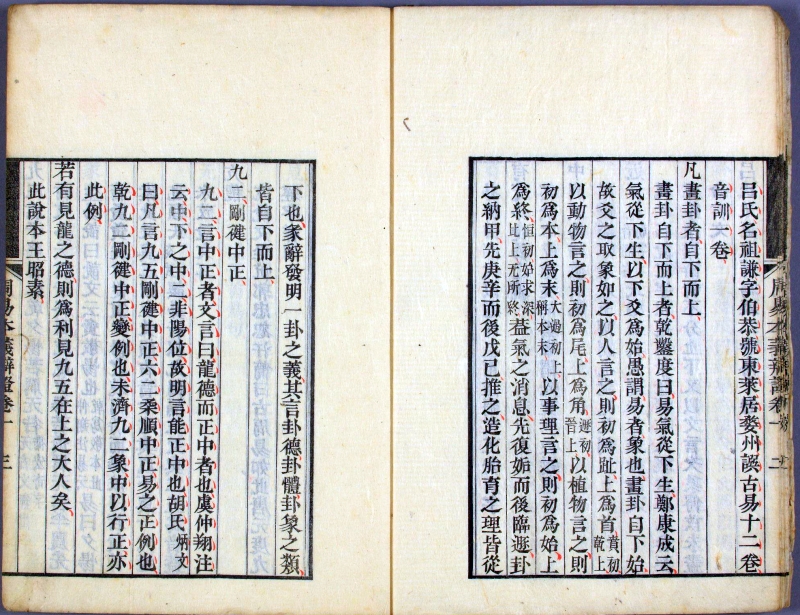 呂氏名祖謙字伯恭號東萊居婺州談古易十二卷
音訓一卷
凡畫卦者自下而上
畫卦自下而上者乾鑿度曰易氣從下生鄭康成云
氣從下生以下爻爲始愚謂易者象也畫卦曰下始
故爻之取象如之以人言之則初爲趾上爲首賁初乾上
以動物言之則初爲尾上爲角遯初晉上以植物言之則
初爲本上爲末大過初上稱本末以事理言之則初爲始上
爲終恒初始求深比上无所終葢氣之消息先復姤而後臨遯卦
之納甲先庚辛而後戊己推之造化胎育之理皆從
下也彖辭發明一卦之義其言卦德卦體卦象之類
皆自下而上
九二剛健中正
九二言中正者文言曰龍德而正中者也虞仲翔注
云中下之中二非陽位故明言能正中也胡氏炳文
曰凡言九五剛健中正六二柔順中正易之正例也
乾九二剛健中正變例也未濟九二象中以行正亦
此例
若有見龍之德則爲利見九五在上之大人矣
此說本王昭素
周易本義辯證卷一
三